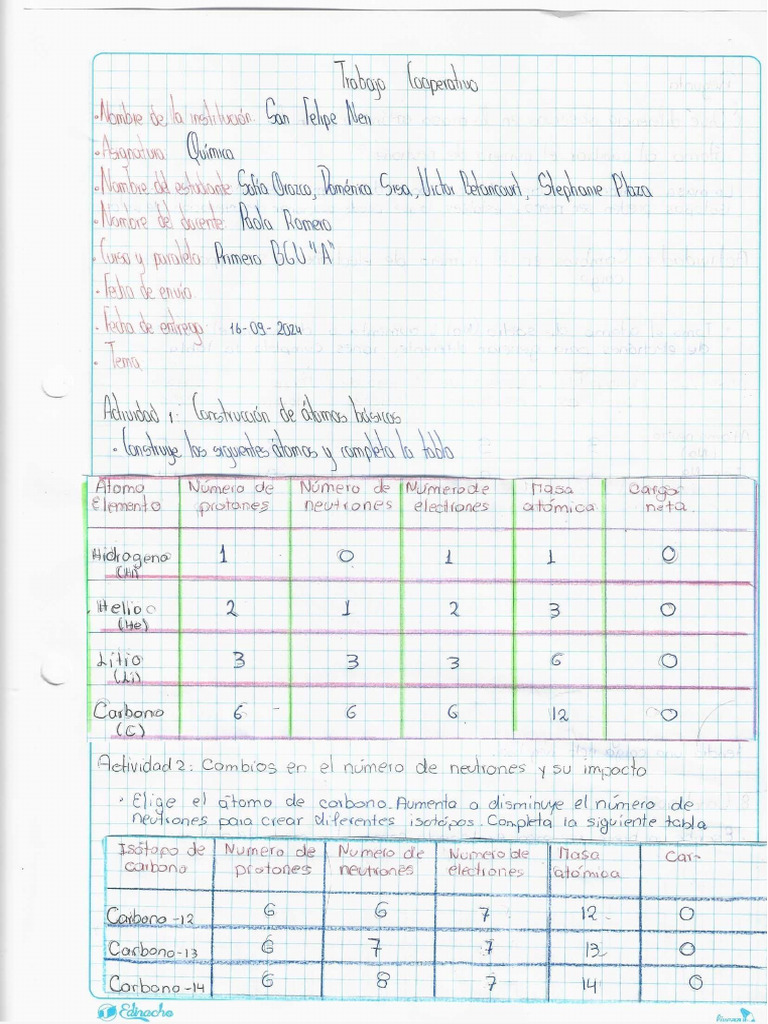 Trabajo Cooperativo
• Nombre de la institución: San Felipe Neri
• Asignatura: Química
• Nombre del estudiante: Sofía Orozco, Doménica Sisa, Victor Betancourt, Stephanie Plaza
• Nombre del docente: Paola Romero
• Curso y paralelo: Primero BGU "A"
• Fecha de envío:
• Fecha de entrega: 16-09-2024
• Tema:
Actividad 1: Construcción de átomos básicos
• Construye los siguientes átomos y completa la tabla
Átomo Elemento | Número de protones | Número de neutrones | Número de electrones | Masa atómica | Carga neta
Hidrogeno (H) | 1 | 0 | 1 | 1 | 0
Helio (He) | 2 | 1 | 2 | 3 | 0
Litio (Li) | 3 | 3 | 3 | 6 | 0
Carbono (C) | 6 | 6 | 6 | 12 | 0
Actividad 2: Cambios en el número de neutrones y su impacto
• Elige el átomo de carbono. Aumenta o disminuye el número de
neutrones para crear diferentes isotópos. Completa la siguiente tabla
Isótopo de carbono | Numero de protones | Numero de neutrones | Numero de electrones | Masa atómica | Car-
Carbono-12 | 6 | 6 | 7 | 12 | 0
Carbono-13 | 6 | 7 | 7 | 13 | 0
Carbono-14 | 6 | 8 | 7 | 14 | 0
Edinacho